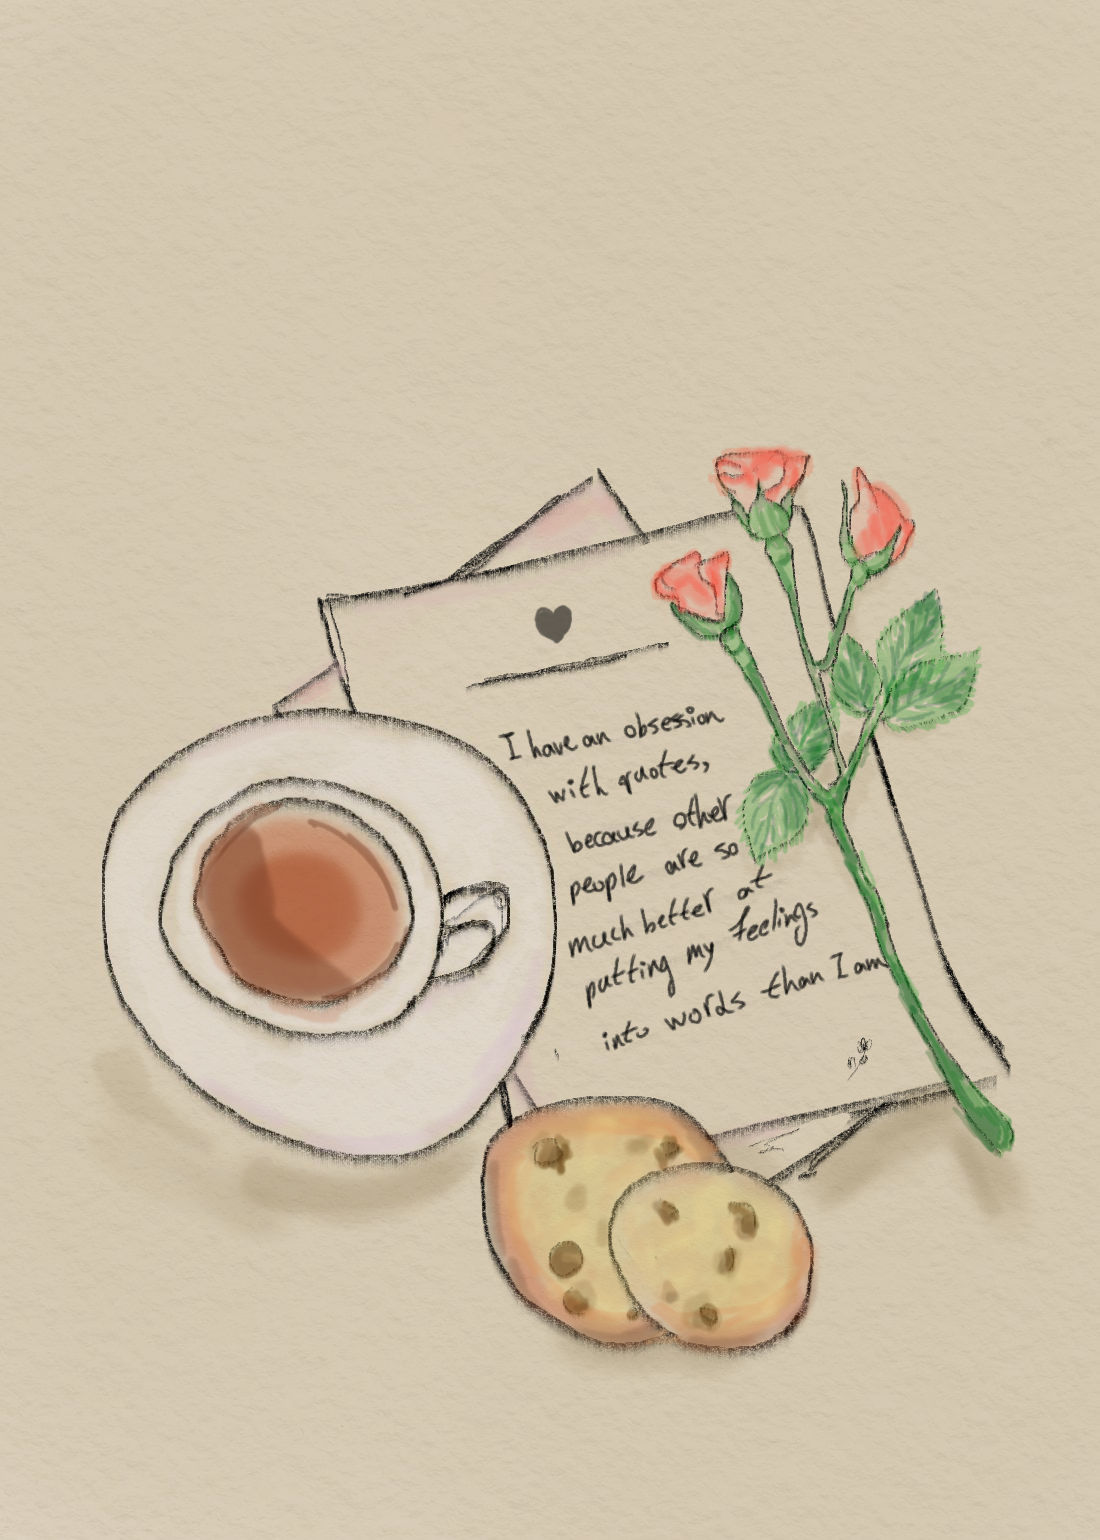 I have an obsession
with quotes,
because other
people are so
much better at
putting my feelings
into words than I am